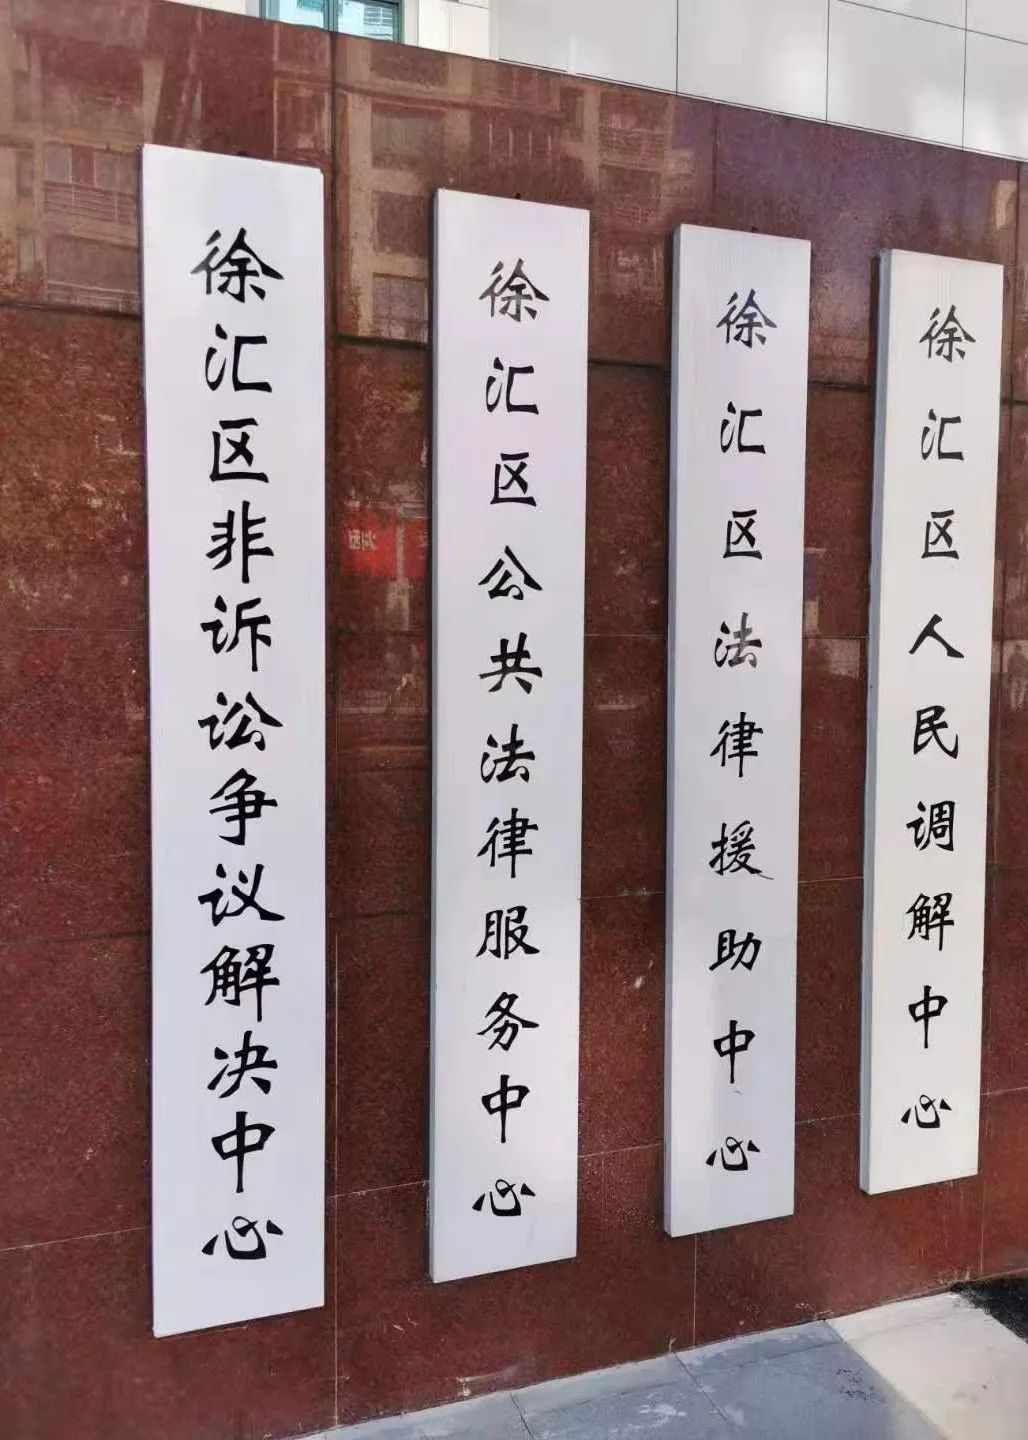 徐汇区非诉讼争议解决中心
徐汇区公共法律服务中心
徐汇区法律援助中心
徐汇区人民调解中心